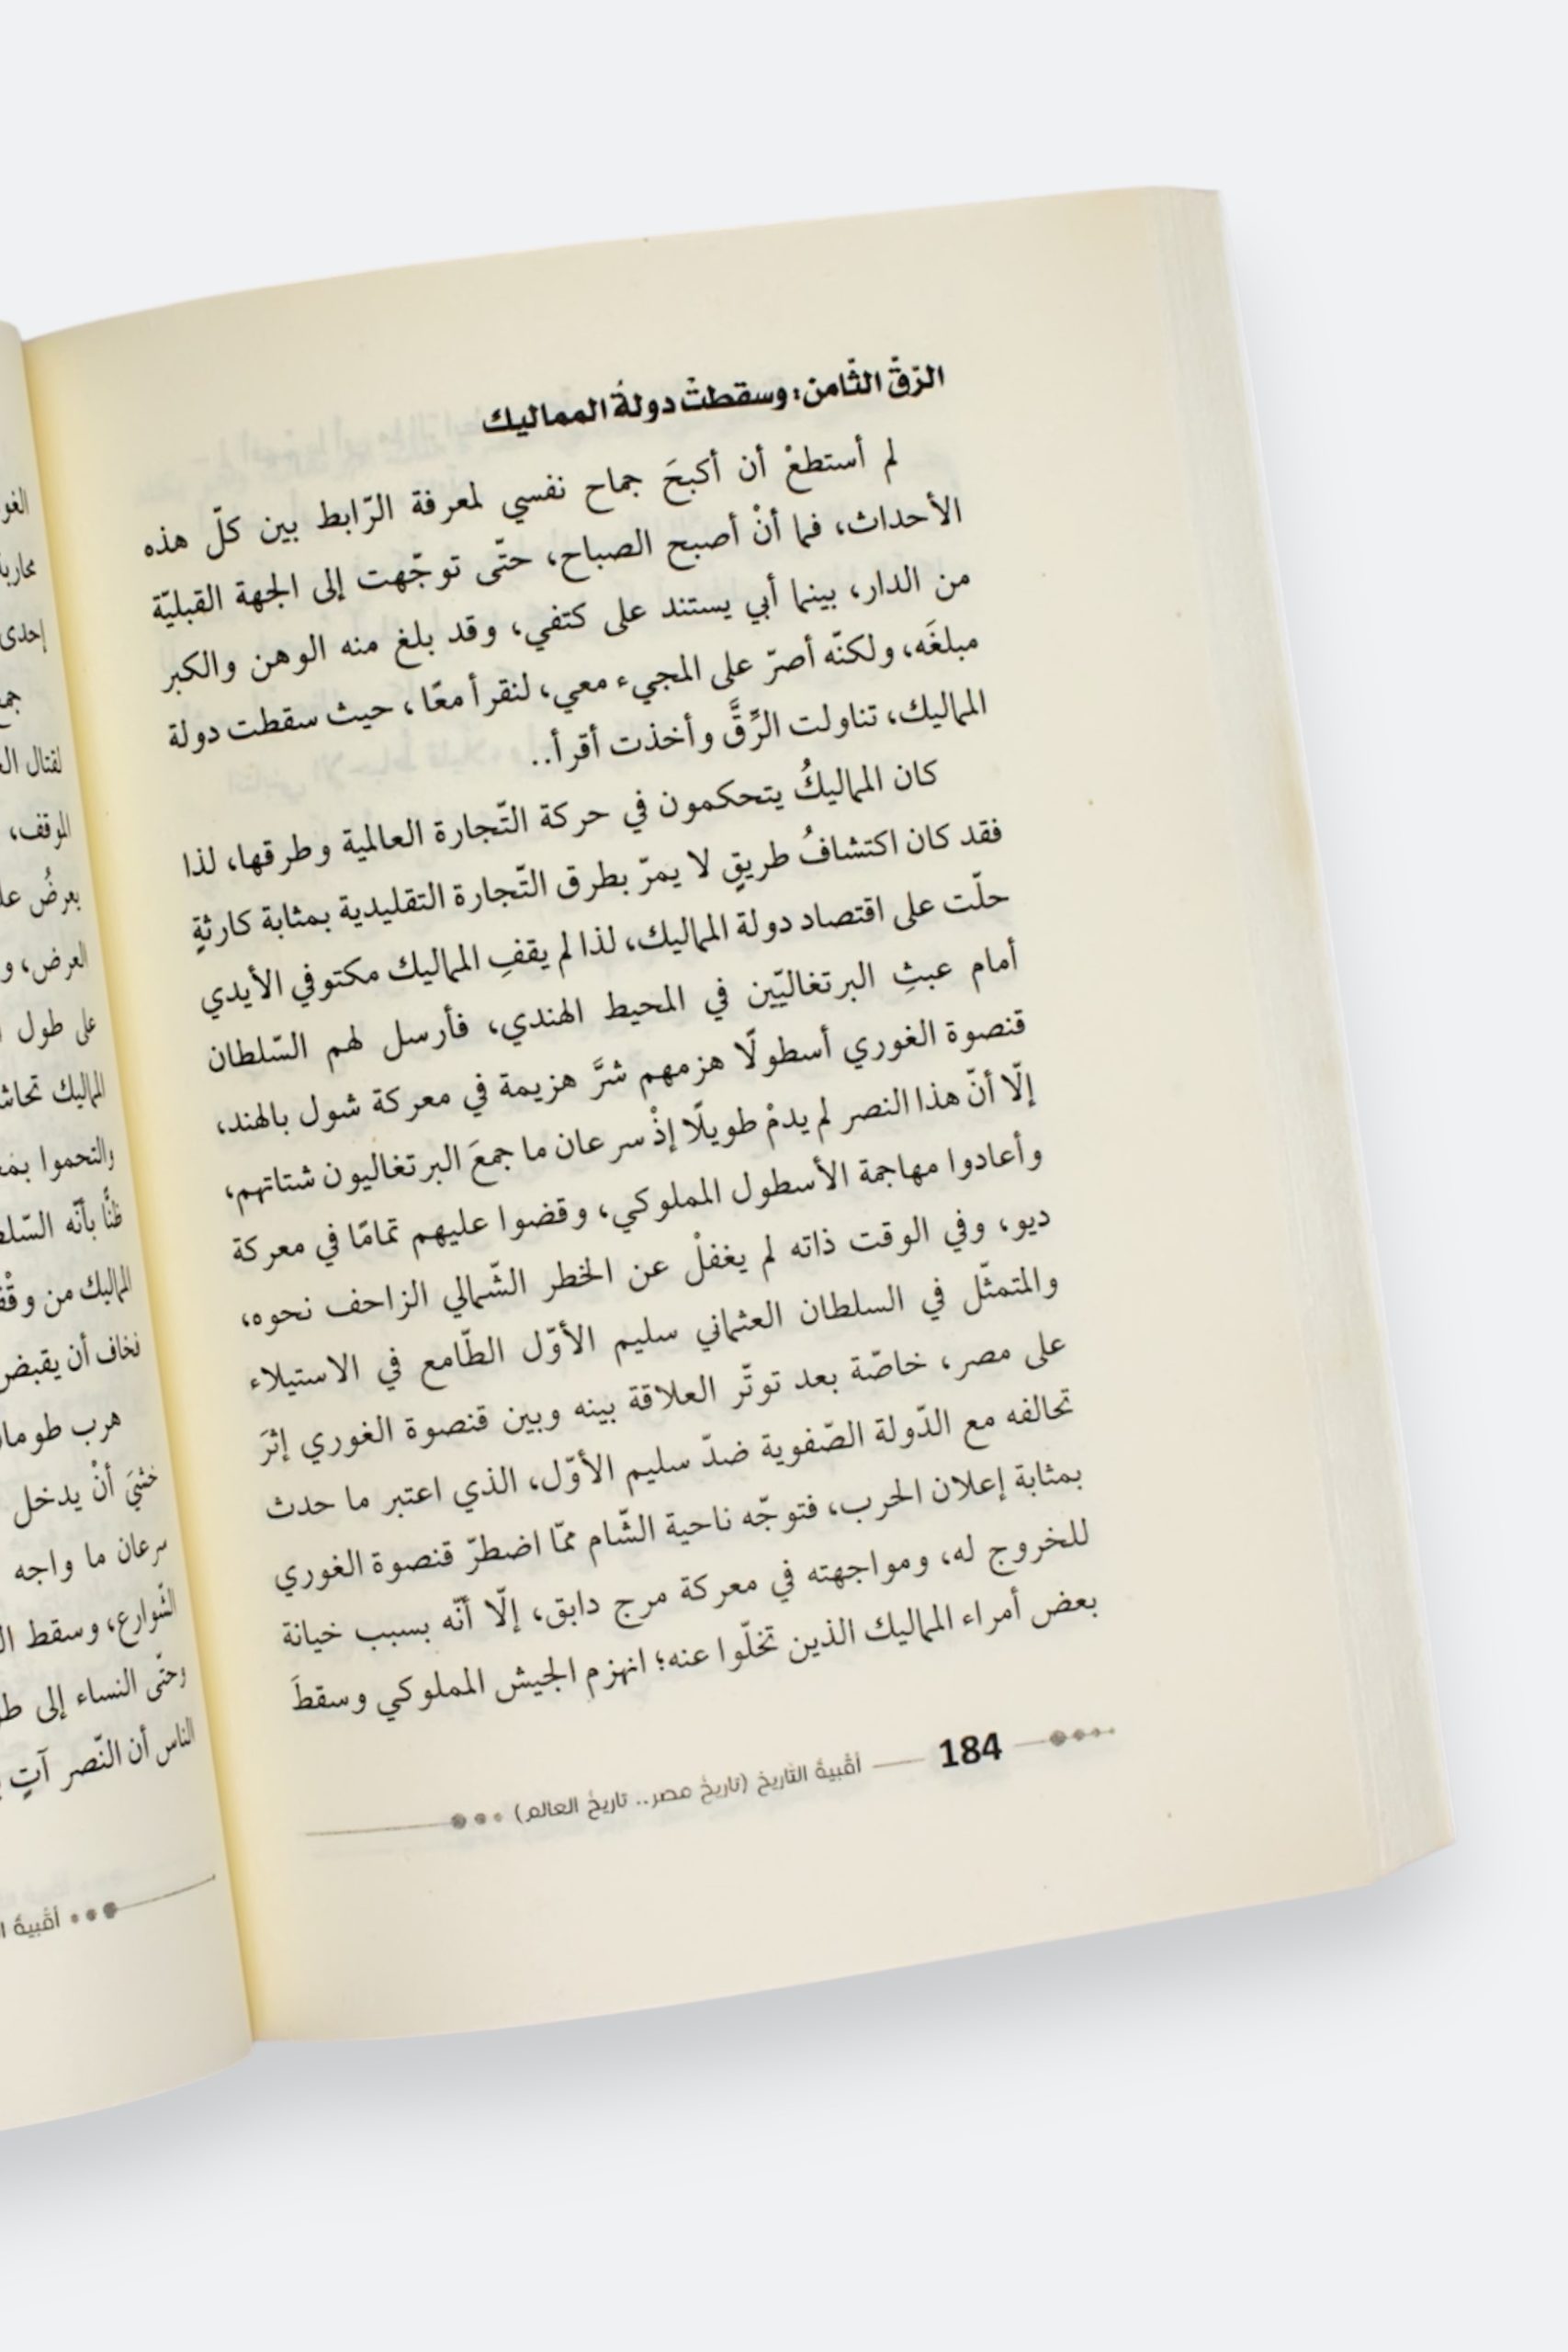 الرّقّ الثّامن: وسقطتْ دولةُ المماليك
لم أستطعْ أن أكبحَ جماح نفسي لمعرفة الرّابط بين كلّ هذه
الأحداث، فما أنْ أصبح الصباح، حتّى توجّهت إلى الجهة القبليّة
من الدار، بينما أبي يستند على كتفي، وقد بلغ منه الوهن والكبر
مبلغَه، ولكنّه أصرّ على المجيء معي، لنقرأ معًا، حيث سقطت دولة
المماليك، تناولت الرِّقَّ وأخذت أقرأ..
كان المماليكُ يتحكمون في حركة التّجارة العالمية وطرقها، لذا
فقد كان اكتشافُ طريقٍ لا يمرّ بطرق التّجارة التقليدية بمثابة كارثةٍ
حلّت على اقتصاد دولة المماليك، لذا لم يقفِ المماليك مكتوفي الأيدي
أمام عبثِ البرتغاليّين في المحيط الهندي، فأرسل لهم السّلطان
قنصوة الغوري أسطولًا هزمهم شرَّ هزيمة في معركة شول بالهند،
إلّا أنّ هذا النصر لم يدمْ طويلًا إذْ سرعان ما جمعَ البرتغاليون شتاتهم،
وأعادوا مهاجمة الأسطول المملوكي، وقضوا عليهم تمامًا في معركة
ديو، وفي الوقت ذاته لم يغفلْ عن الخطر الشّمالي الزاحف نحوه،
والمتمثّل في السلطان العثماني سليم الأوّل الطّامع في الاستيلاء
على مصر، خاصّة بعد توتّر العلاقة بينه وبين قنصوة الغوري إثرَ
تحالفه مع الدّولة الصّفوية ضدّ سليم الأوّل، الذي اعتبر ما حدث
بمثابة إعلان الحرب، فتوجّه ناحية الشّام ممّا اضطرّ قنصوة الغوري
للخروج له، ومواجهته في معركة مرج دابق، إلّا أنّه بسبب خيانة
بعض أمراء المماليك الذين تخلّوا عنه؛ انهزم الجيش المملوكي وسقطَ
184 أقبية التّاريخ (تاريخُ مصر.. تاريخُ العالم)
إحدى
الموقف،
بعرضُ
العرض، و
على طول
المماليك
والتحموا
ظنًّا بأنّه
المماليك من
فخاف أن يقبض
هرب
خشيَ أنْ يدخل
سرعان ما واجه
الشّوارع، وسقط
وحتّى النساء إلى
الناس أن النّصر آتٍ
أقبية